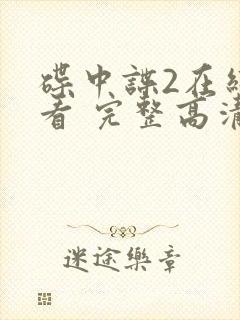 碟中諜2在
看 完整高清
迷途樂章